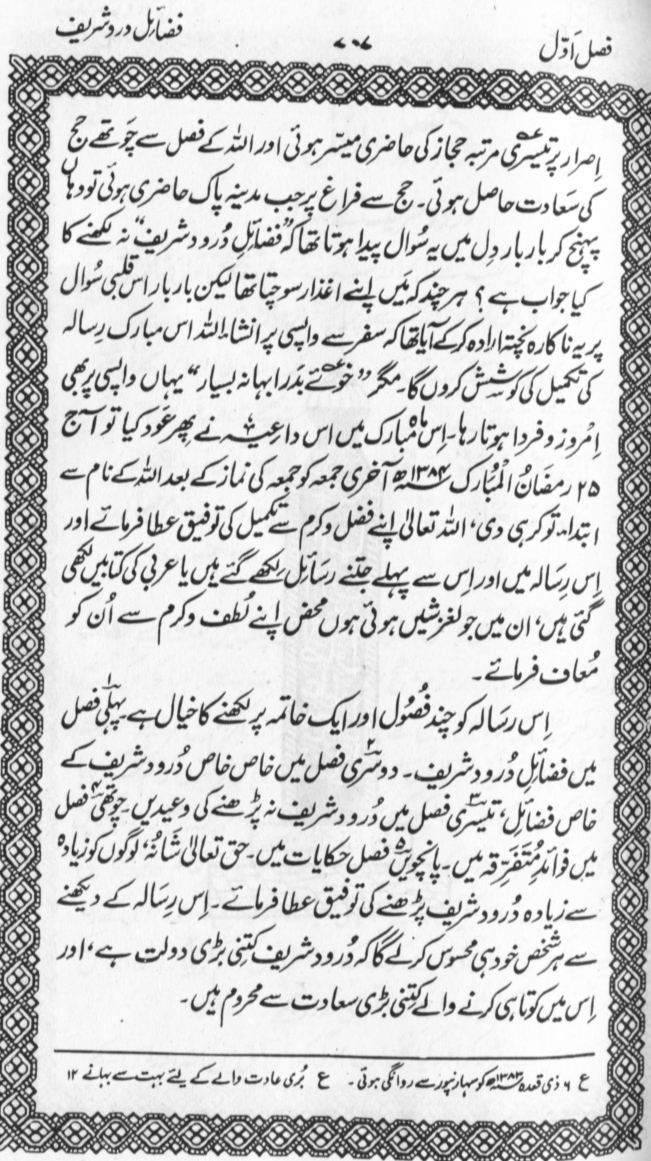 فصل اوّل
۷۰۷
فضائل درود شریف
اِصرار پر تیسری عہ مرتبہ حجاز کی حاضری میسر ہوئی اور اللہ کے فضل سے چوتھے حج
کی سَعادت حاصل ہوئی۔ حج سے فراغ پر جب مدینہ پاک حاضری ہوئی تو وہاں
پہنچ کر بار بار دِل میں یہ سُوال پیدا ہوتا تھا کہ ”فضائلِ دُرود شریف“ نہ لکھنے کا
کیا جواب ہے؟ ہر چند کہ مَیں اپنے اعذار سوچتا تھا لیکن بار بار اس قلبی سُوال
پر یہ ناکارہ پختہ ارادہ کر کے آیا تھا کہ سفر سے واپسی پر انشاء اللہ اس مبارک رِسالہ
کی تکمیل کی کوشش کروں گا۔ مگر ”خوئے عہ بَد را بہانہ بسیار“ یہاں واپسی پر بھی
اِمْروز و فردا ہوتا رہا۔ اِس ماہ مُبارک میں اس داعیہ نے پھر عَود کیا تو آج
۲۵ رمضانُ الْمُبارک ۱۳۸۴ھ آخری جمعہ کو جمعہ کی نماز کے بعد اللہ کے نام سے
ابتداء تو کر ہی دی، اللہ تعالیٰ اپنے فضل و کرم سے تکمیل کی توفیق عطا فرمائے اور
اِس رِسالہ میں اور اِس سے پہلے جتنے رسائل لکھے گئے ہیں یا عربی کی کتابیں لکھی
گئی ہیں، ان میں جو لغزشیں ہوئی ہوں محض اپنے لُطف و کرم سے اُن کو
مُعاف فرمائے۔
اِس رِسالہ کو چند فُصُول اور ایک خاتمہ پر لکھنے کا خیال ہے۔ پہلی۱ فصل
میں فضائلِ دُرود شریف۔ دوسری۲ فصل میں خاص خاص دُرود شریف کے
خاص فضائل، تیسری۳ فصل میں دُرود شریف نہ پڑھنے کی وعیدیں۔ چوتھی۴ فصل
میں فوائدِ مُتَفَرِّقہ میں۔ پانچویں۵ فصل حکایات میں۔ حق تعالیٰ شَانُہٗ لوگوں کو زیادہ
سے زیادہ دُرود شریف پڑھنے کی توفیق عطا فرمائے۔ اِس رِسالہ کے دیکھنے
سے ہر شخص خود ہی محسوس کرلے گا کہ دُرود شریف کتنی بڑی دولت ہے، اور
اِس میں کوتاہی کرنے والے کتنی بڑی سعادت سے محروم ہیں۔
ع ۶ ذی قعدہ ۱۳۸۳ھ کو سہارنپور سے روانگی ہوئی۔ ع بُری عادت والے کے لیئے بہت سے بہانے ۱۲